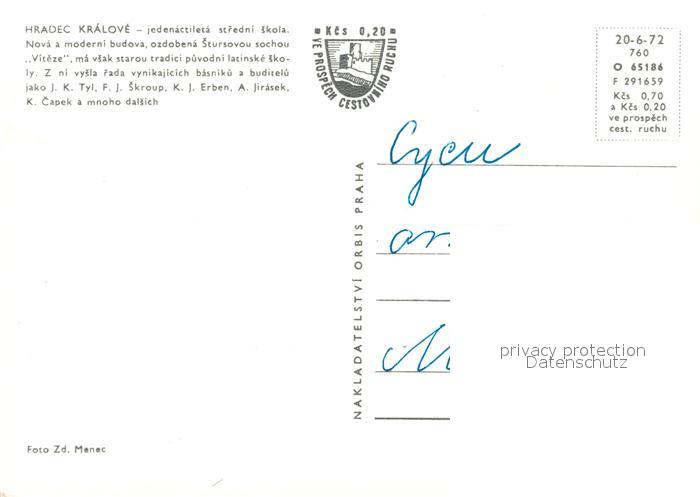 HRADEC KRÁLOVÉ – jedenáctiletá střední škola.
Nová a moderní budova, ozdobená Štursovou sochou
,,Vítěze", má však starou tradici původní latinské ško-
ly. Z ní vyšla řada vynikajících básníků a buditelů
jako J. K. Tyl, F. J. Škroup, K. J. Erben, A. Jirásek,
K. Čapek a mnoho dalších
Kčs 0,20
VE PROSPĚCH CESTOVNÍHO RUCHU
20-6-72
760
O 65186
F 291659
Kčs 0,70
a Kčs 0,20
ve prospěch
cest. ruchu
NAKLADATELSTVÍ ORBIS PRAHA
privacy protection
Datenschutz
Foto Zd. Menec